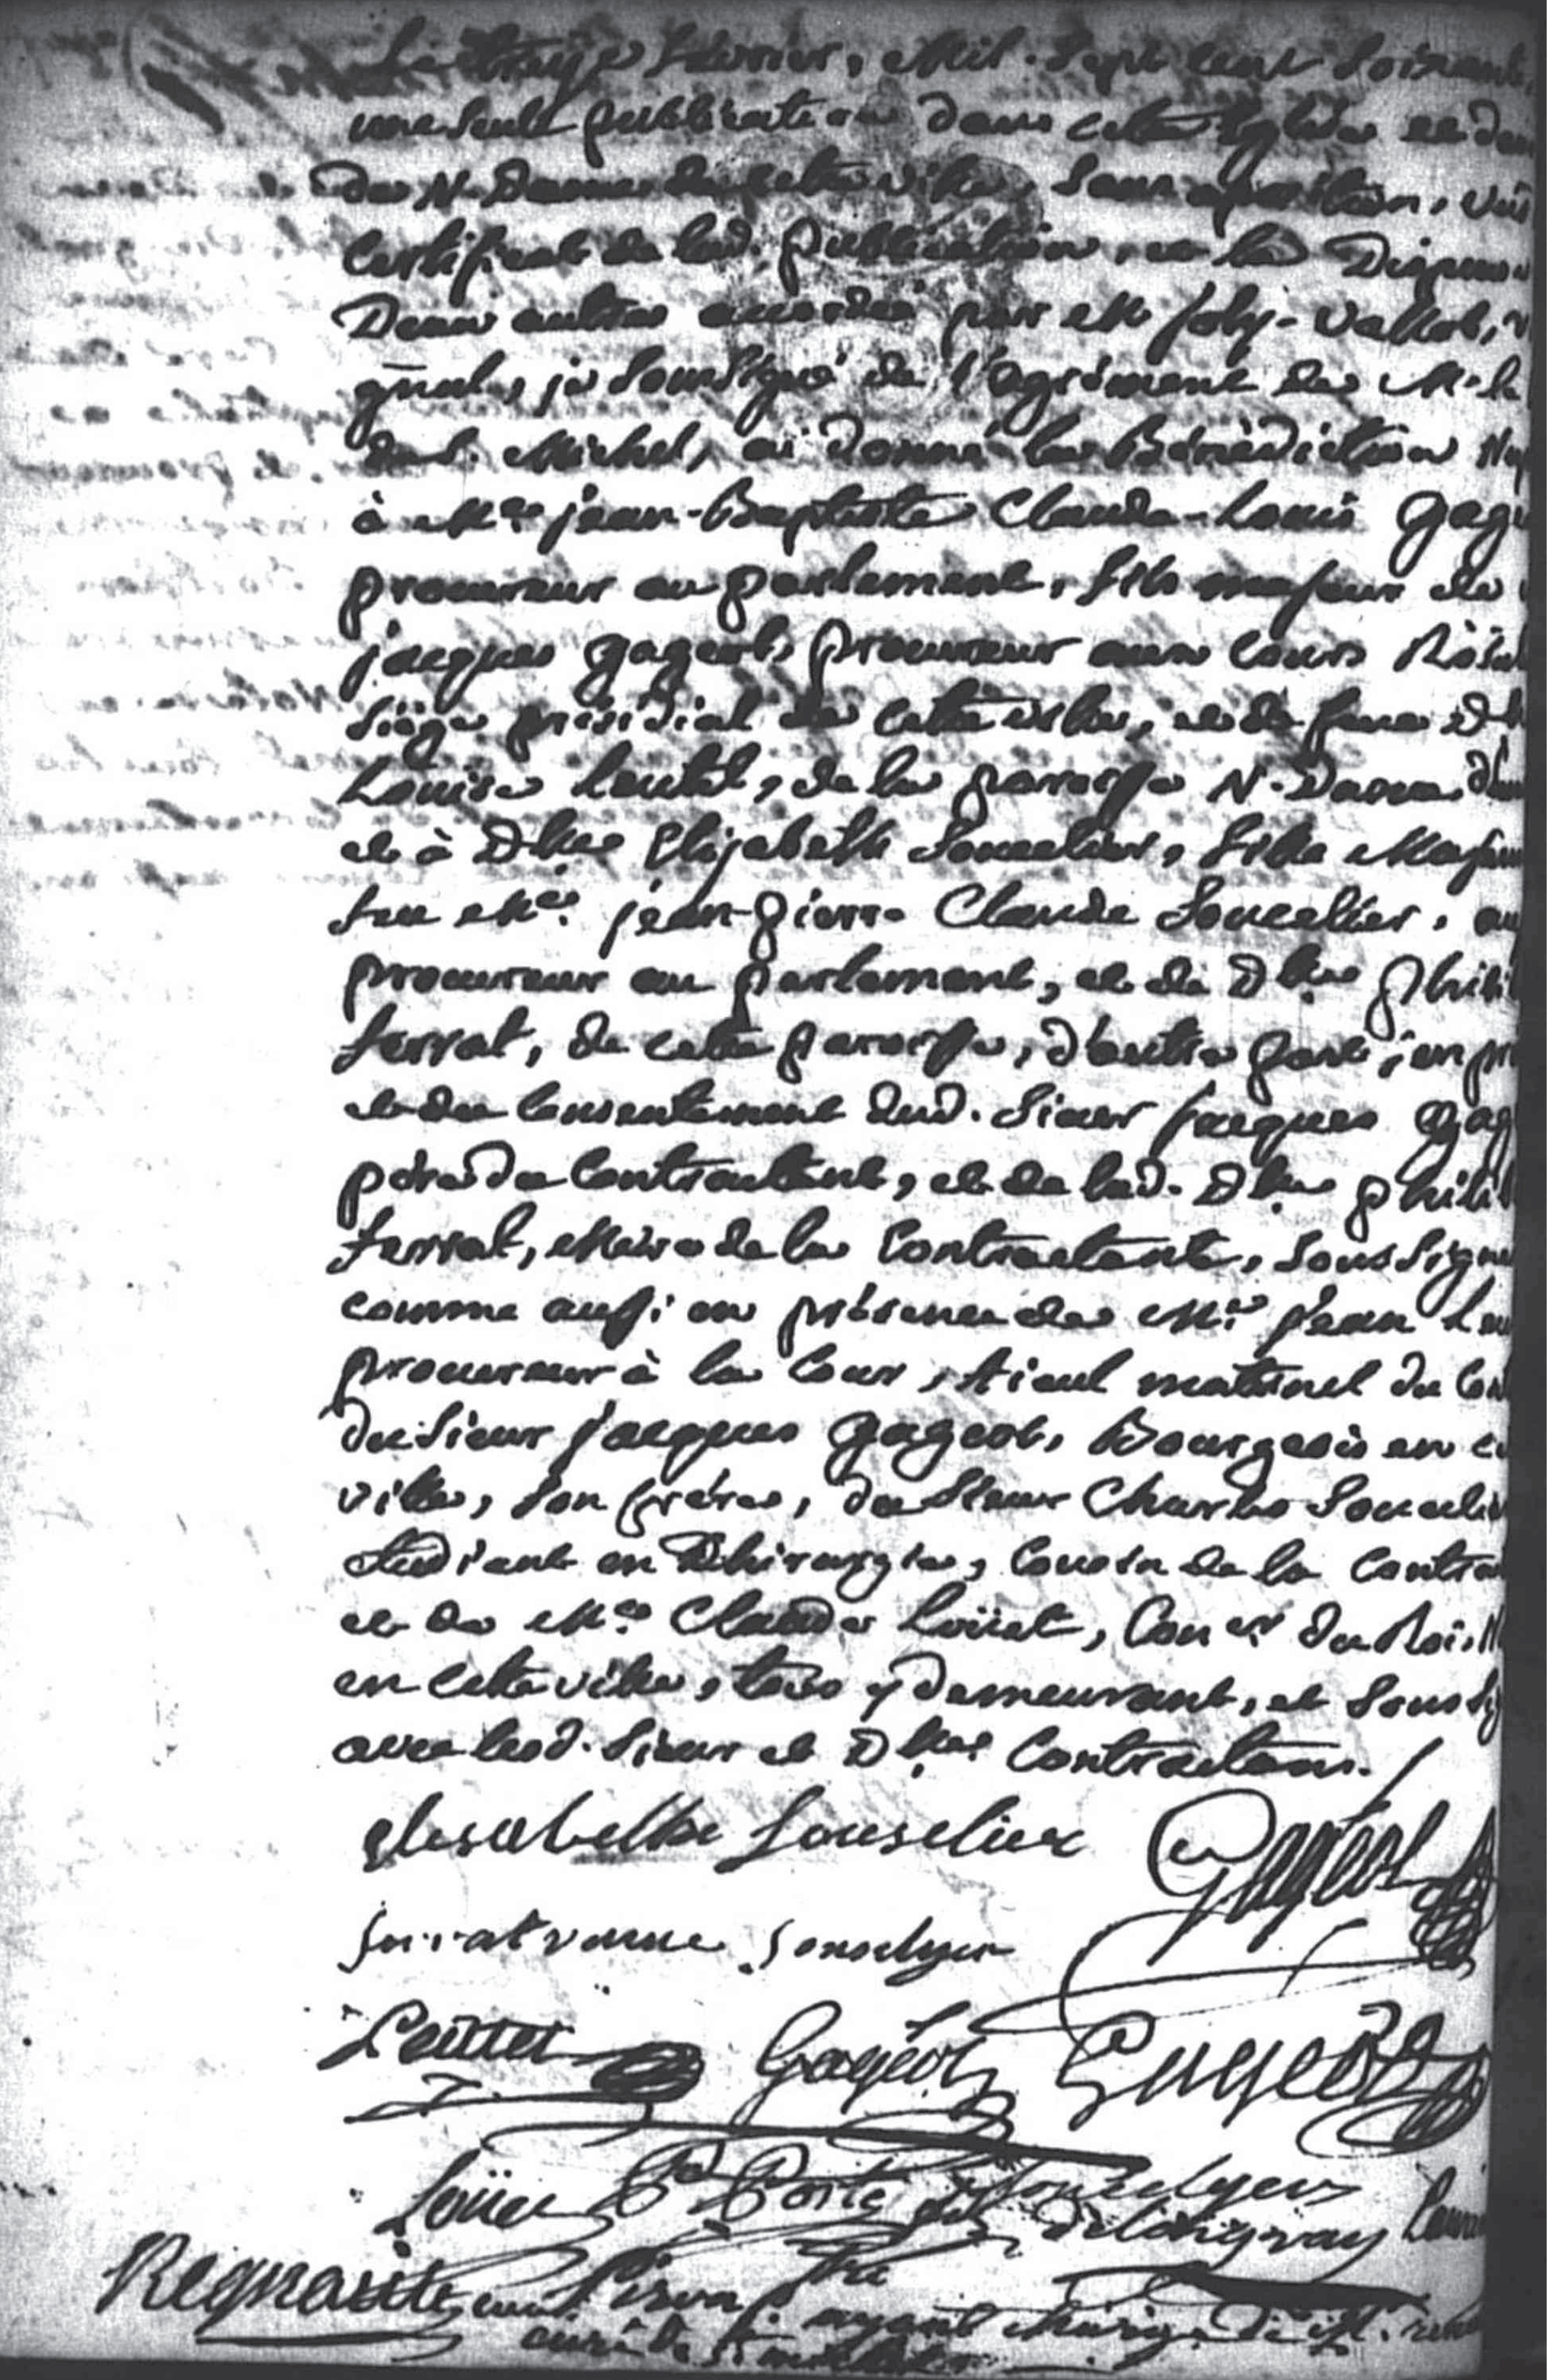 Le treize Fevrier, Mil. Sept cent Soixante
une seule publication dans cette Eglise et dans
de N. Dame de cette ville, Sans opposition, vû
certificat de lad. publication, et la Dispense
Deux autres accordée par M Joly-Vallot, v
gñal, je Soussigné de l'agrément de M. le
de S. Michel, ai donné la Bénédiction Nup
à Me. jean-Baptiste Claude-Louis Gage
procureur au parlement, fils majeur de
jacques gageot, procureur aux cours Roïal
Siége présidial de cette ville, et de feue D
Louise Leutet, de la paroisse N. Dame d'un
et à Dlle. Elizabeth Soucelier, fille Majeur
feu Me. jean-pierre Claude Soucelier, 
procureur au parlement, et de Dlle. phili
Serrat, de cette paroisse, d'autre part; en pr
et du consentement dud. Sieur jacques Gag
pére du Contractant, et de lad. Dlle. phili
Serrat, Mére de la Contractante, Soussigné
comme aussi en présence de Me. jean Leu
procureur à la Cour, Aïeul maternel du Con
du Sieur jacques gageot, Bourgeois en c
ville, Son frére, du Sieur Charles Soucelier
étudiant en Chirurgie, Cousin de la Contra
et de Me. Claude Loüet, Coner. du Roi, N
en cette ville, tous y demeurant, et Soussig
avec lesd. Sieur et Dlle. Contractans.
elisabethe Souselier Gageot
Serrat veuve Souselyer
Leutet Gageot Gageot
Loüet Porte Souselyer
Regnault
curé de St michel